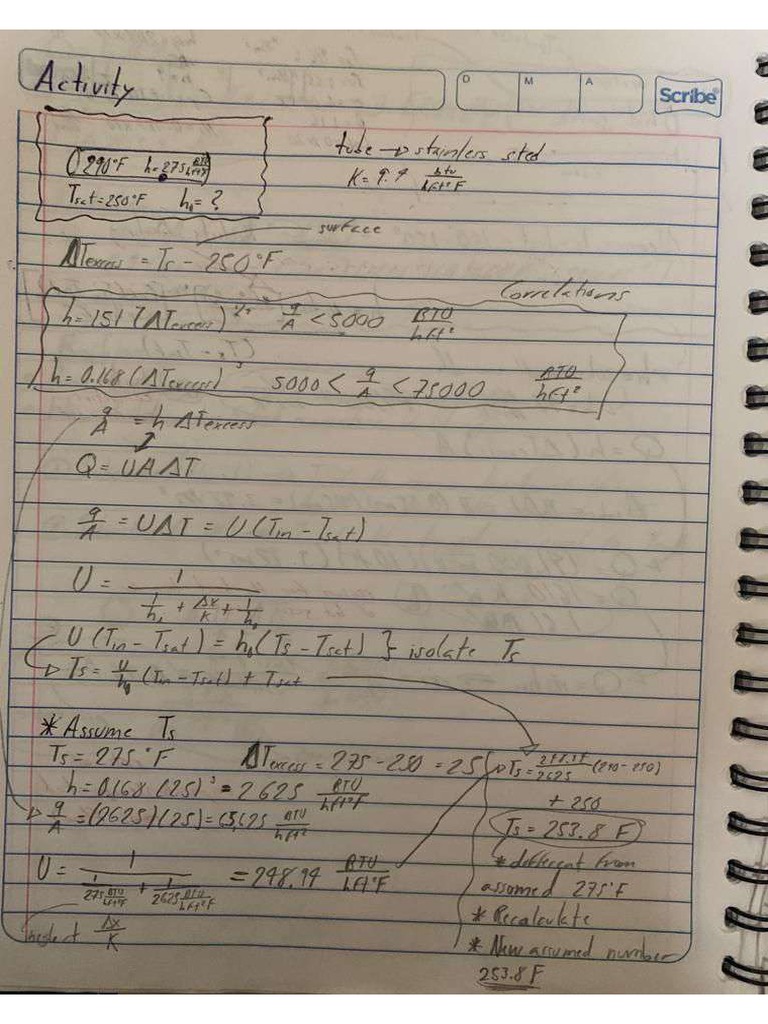 Activity
D M A
Scribe
290°F h=275 BTU/hft²F
Tsat=250°F h₀=?
tube → stainless steel
K=9.4 btu/hft²F
surface
ΔTexcess = Ts - 250°F
Correlations
h=151 (ΔTexcess)^1/2 q/A < 5000 BTU/hft²
h=0.168 (ΔTexcess)³ 5000 < q/A < 75000 BTU/hft²
q/A = h ΔTexcess
Q = UAΔT
q/A = UΔT = U(Tin - Tsat)
U = 1/(1/hi + Δx/K + 1/h₀)
U(Tin - Tsat) = h₀(Ts - Tsat) } isolate Ts
Ts = U/h₀ (Tin - Tsat) + Tsat
* Assume Ts
Ts = 275°F ΔTexcess = 275 - 250 = 25
h = 0.168 (25)³ = 2625 BTU/hft²F
q/A = (2625)(25) = 65,625 BTU/hft²
U = 1/(1/275 BTU/hft²F + 1/2625 BTU/hft²F) = 248.94 BTU/hft²F
neglect Δx/K
(290-250)
+ 250
Ts = 253.8 F
* different from
assumed 275°F
* Recalculate
* New assumed number
253.8 F